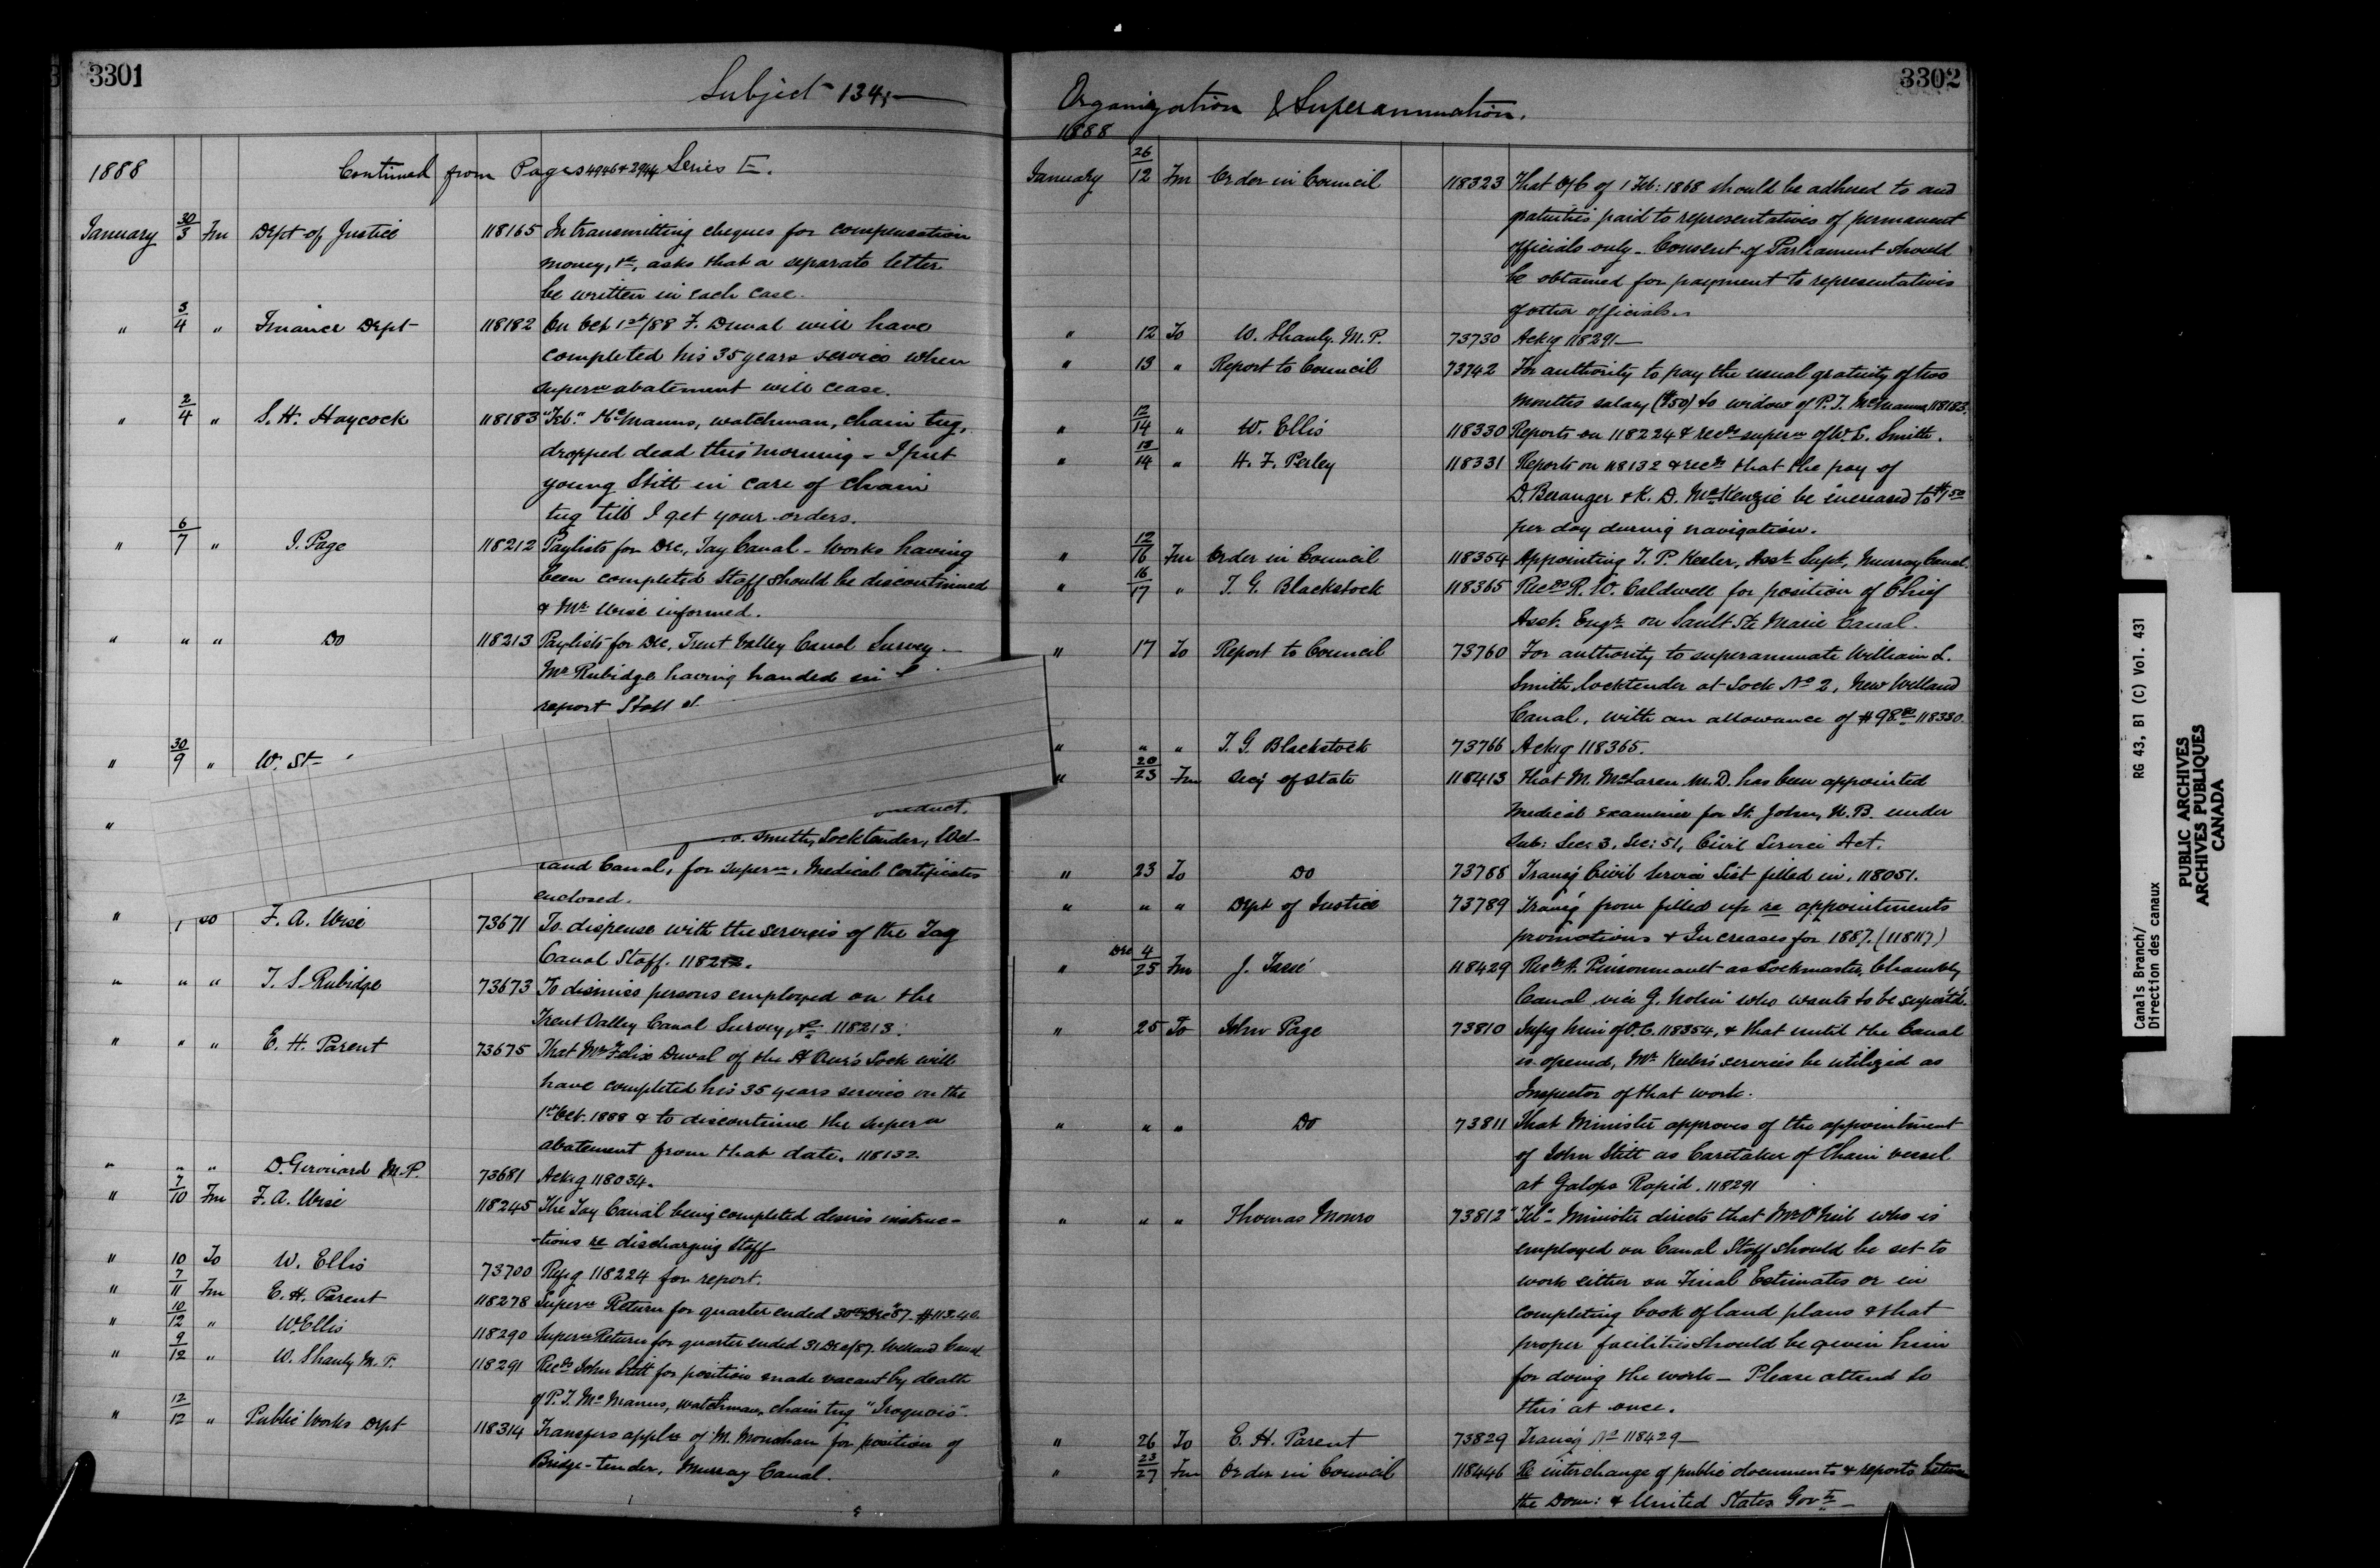 3301
Subject 134,
1888 Continued from Pages 4946 & 3944 Series E.
January 30/3 Fm Dept of Justice 118165 In transmitting cheques for compensation
money, &c, asks that a separate letter
be written in each case.
" 3/4 " Finance Dept 118182 On Oct 1st/88 F. Duval will have
completed his 35 years service when
superⁿ abatement will cease.
" 2/4 " S. H. Haycock 118183 "Tel." McManus, watchman, chain tug,
dropped dead this morning - I put
young Stitt in care of chain
tug till I get your orders.
" 6/7 " J. Page 118212 Paylists for Dec, Tay Canal - Works having
been completed Staff should be discontinued
& Mr Wise informed.
" " " Do 118213 Paylists for Dec, Trent Valley Canal Survey -
Mr Rubidge having handed in
report Staff
" 30/9 " W. St
"
nduct.
Smith, Locktender, Wel-
land Canal, for superⁿ, Medical Certificates
enclosed.
" F. A. Wise 73671 To dispense with the services of the Tay
Canal Staff. 118212.
" " " T. S. Rubidge 73673 To dismiss persons employed on the
Trent Valley Canal Survey, &c 118213.
" " " E. H. Parent 73675 That Mr Felix Duval of the St Ours Lock will
have completed his 35 years service on the
1st Oct. 1888 & to discontinue the superⁿ
abatement from that date. 118132
" " " D. Girouard M.P. 73681 Ackg 118034.
" 7/10 Fm F. A. Wise 118245 The Tay Canal being completed desires instruc-
-tions re discharging Staff
" 10 To W. Ellis 73700 Refg 118224 for report.
" 7/11 Fm E. H. Parent 118278 Superⁿ Return for quarter ended 30th Dec/87. $113.40
" 10/12 " W. Ellis 118290 Superⁿ Return for quarter ended 31 Dec/87. Welland Canal
" 9/12 " W. Shanly M.P. 118291 Recds John Stitt for position made vacant by death
of P. J. McManus, watchman, chain tug "Iroquois".
" 12/12 " Public Works Dept 118314 Transfers applⁿ of M. Monahan for position of
Bridge-tender, Murray Canal.
3302
Organization & Superannuation.
1888
January 26/12 Fm Order in Council 118323 That O/C of 1 Feb: 1868 should be adhered to and
gratuities paid to representatives of permanent
officials only - Consent of Parliament should
be obtained for payment to representatives
of other officials.
" 12 To W. Shanly M.P. 73730 Ackg 118291
" 13 " Report to Council 73742 For authority to pay the usual gratuity of two
months salary ($50) to widow of P. J. McManus 118183.
" 12/14 " W. Ellis 118330 Reports on 118224 & recds superⁿ of W. L. Smith.
" 13/14 " H. F. Perley 118331 Reports on 118132 & recds that the pay of
D. Beranger & K. D. McKenzie be increased to $1.50
per day during navigation.
" 12/16 Fm Order in Council 118354 Appointing T. P. Keeler, Asst Supt, Murray Canal.
" 16/17 " T. G. Blackstock 118365 Recds R. W. Caldwell for position of Chief
Asst. Engr on Sault Ste Marie Canal.
" 17 To Report to Council 73760 For authority to superannuate William L.
Smith, locktender at Lock No 2, New Welland
Canal, with an allowance of $98. 118330.
" " " T. G. Blackstock 73766 Ackg 118365.
" 20/23 Fm Secy of State 118413 That M. McLaren, M.D. has been appointed
medical examiner for St. John, N.B. under
Sub: Sec: 3, Sec: 51, Civil Service Act.
" 23 To Do 73788 Transg Civil Service List filled in, 118051.
" " " Dept of Justice 73789 Transg form filled up re appointments
promotions & Increases for 1887. (118117)
" Dec 4/25 Fm J. Tassé 118429 Recds A. Pinsonneault as Lockmaster, Chambly
Canal vice G. Nolin who wants to be superⁿtd.
" 25 To John Page 73810 Infg him of O.C. 118354, & that until the Canal
is opened, Mr Keeler's services be utilized as
Inspector of that work.
" " " Do 73811 That Minister approves of the appointment
of John Stitt as Caretaker of Chain vessel
at Galops Rapid. 118291
" " " Thomas Monro 73812 "Tel" Minister directs that Mr O'Neil who is
employed on Canal Staff should be set to
work either on Final Estimates or in
completing book of land plans & that
proper facilities should be given him
for doing the work - Please attend to
this at once.
" 26 To E. H. Parent 73829 Transg No 118429
" 23/27 Fm Order in Council 118446 Re interchange of public documents & reports between
the Dom: & United States Govts
Canals Branch/ RG 43, B1 (C) Vol. 431
Direction des canaux
PUBLIC ARCHIVES
ARCHIVES PUBLIQUES
CANADA